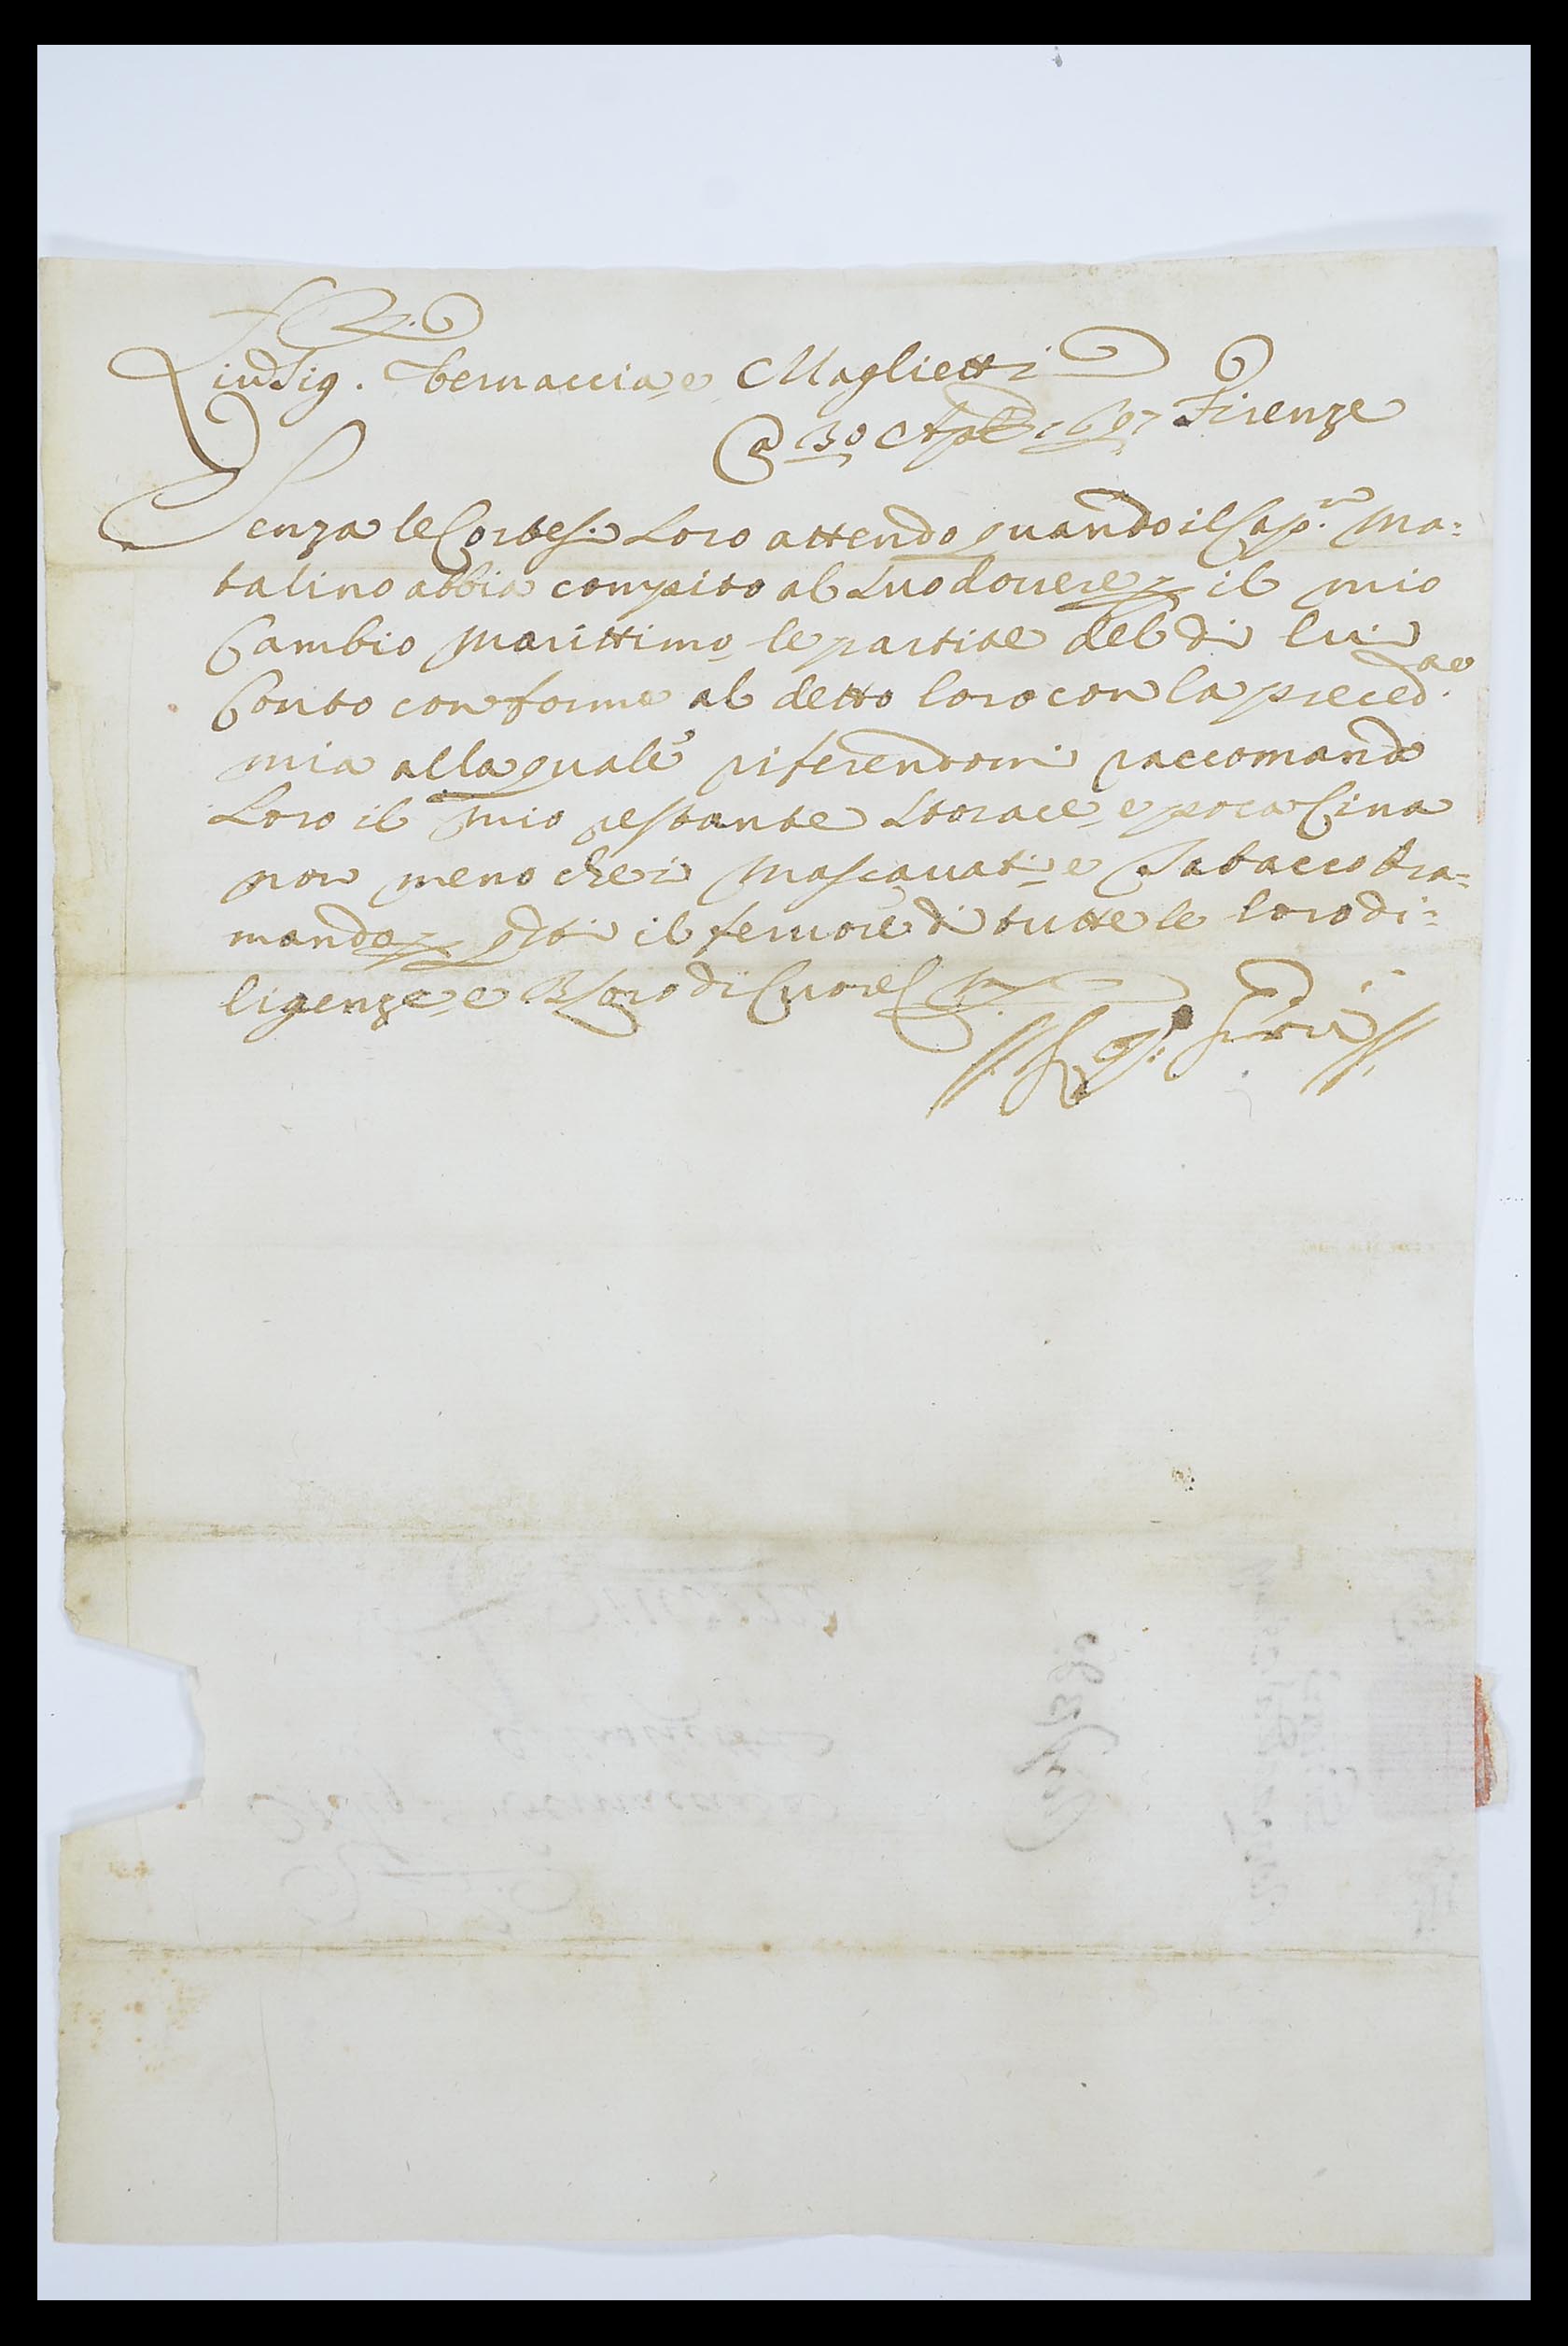 Sig. Bernaccia e Maglietti
a 30 Aple 1697 Firenze
Senza le Cortesi. Loro attendo quando il Cap.n Ma=
talino abbia compito al suo dovere il mio
Cambio Marittimo le partite del di lui
Conto conforme al detto loro con la preced.
mia alla quale riferendomi raccomando
Loro il mio restante storace e poca Cina
non meno che i Mascavati e Tabacco bra=
mando il fervore di tutte le loro di=
ligenze e B loro di Cuore